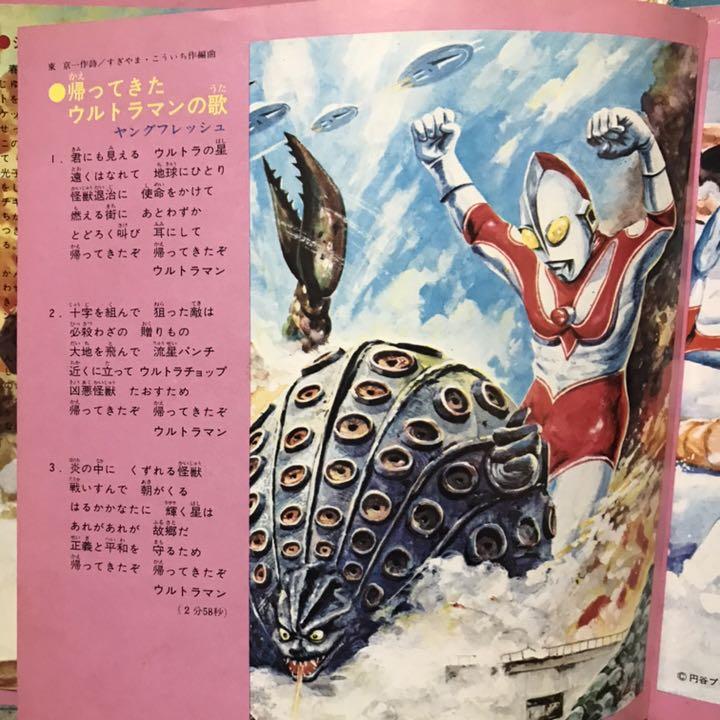 東 京一作詩/すぎやま・こういち作編曲
●帰ってきた
ウルトラマンの歌
ヤングフレッシュ
1. 君にも見える ウルトラの星
遠くはなれて 地球にひとり
怪獣退治に 使命をかけて
燃える街に あとわずか
とどろく叫び 耳にして
帰ってきたぞ 帰ってきたぞ
ウルトラマン
2. 十字を組んで 狙った敵は
必殺わざの 贈りもの
大地を飛んで 流星パンチ
近くに立って ウルトラチョップ
凶悪怪獣 たおすため
帰ってきたぞ 帰ってきたぞ
ウルトラマン
3. 炎の中に くずれる怪獣
戦いすんで 朝がくる
はるかかなたに 輝く星は
あれがあれが 故郷だ
正義と平和を 守るため
帰ってきたぞ 帰ってきたぞ
ウルトラマン
(2分58秒)
©円谷プ